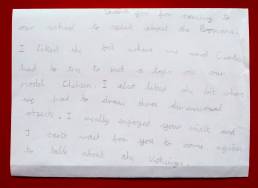 Thank you for coming to
our school to speak about the Romans.
I liked the bit where we and
had to try to put a on our
model . I also liked the bit where
we had to draw three dimensional
objects. I really enjoyed your visit and
I can't wait for you to come again
to talk about the Vikings.